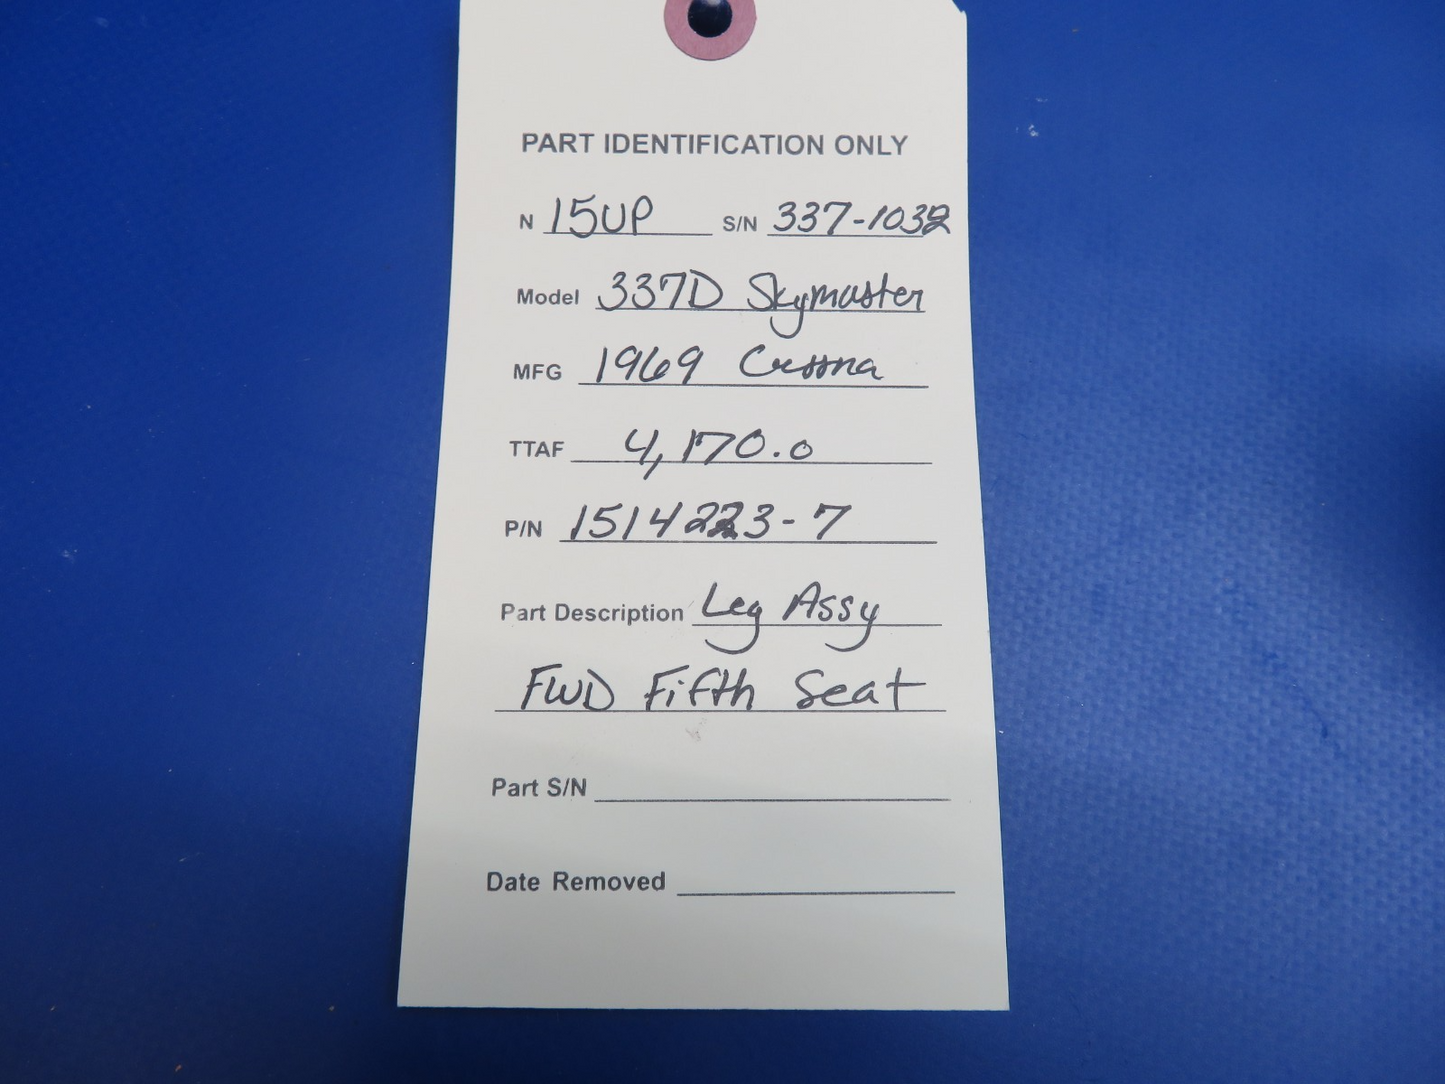 PART IDENTIFICATION ONLY
N 15UP S/N 337-1032
Model 337D Skymaster
MFG 1969 Cessna
TTAF 4,170.0
P/N 1514223-7
Part Description Leg Assy
FWD Fifth Seat
Part S/N
Date Removed